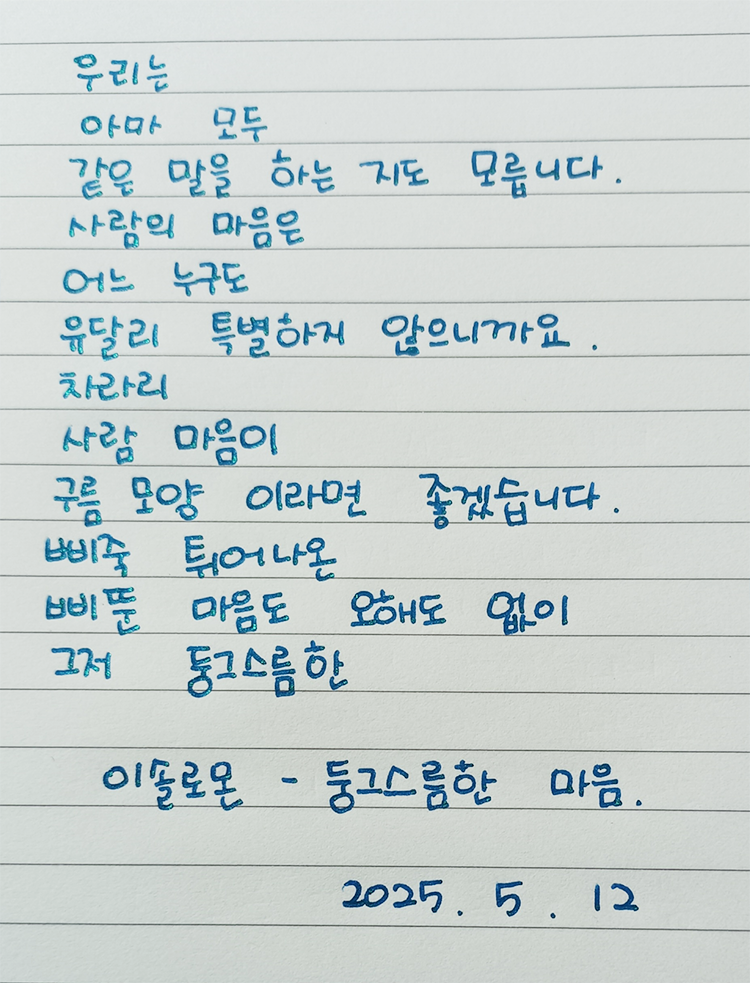 우리는
아마 모두
같은 말을 하는 지도 모릅니다.
사람의 마음은
어느 누구도
유달리 특별하지 않으니까요.
차라리
사람 마음이
구름 모양 이라면 좋겠습니다.
삐죽 튀어나온
삐뚠 마음도 오해도 없이
그저 둥그스름한
이솔로몬 - 둥그스름한 마음.
2025. 5. 12